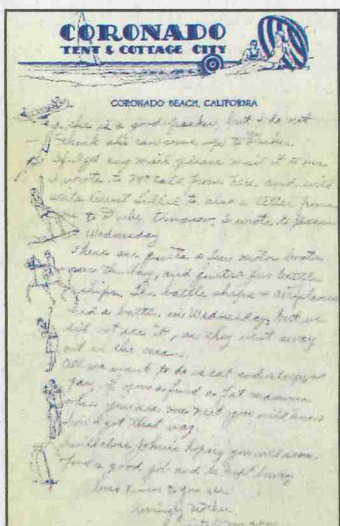 CORONADO
TENT & COTTAGE CITY
CORONADO BEACH, CALIFORNIA
she is a good packer, but I do not
think she can come up to Parker
If I get any mail please mail it to me
I wrote to McCall from here and will
write Aunt Lillie to also a letter from
to Duke tomorrow. I wrote to
Wednesday
There are quite a few motor boats
near the bay, and quite a few battle
ships. The battle ships & airplanes
had a battle on Wednesday, but we
did not see it, as they went away
out in the ocean.
All we want to do is eat and sleep
you, if you find a fat mamma
when you see me next you will know
how I got that way.
hoping you will soon
find a good job and be kept busy
love to you all
Lovingly Mother